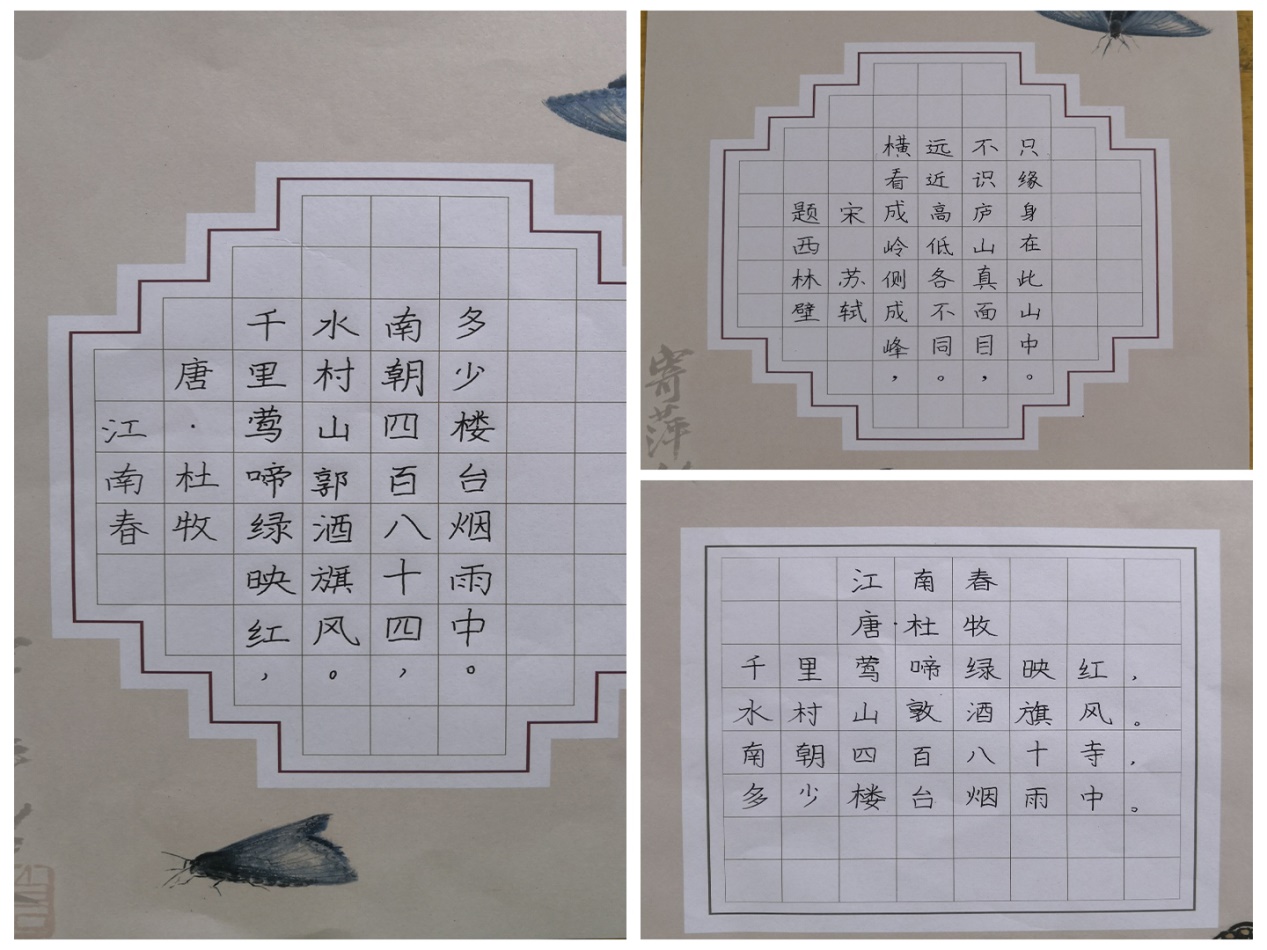 江南春
唐·杜牧
千里莺啼绿映红，
水村山郭酒旗风。
南朝四百八十四，
多少楼台烟雨中。
题西林壁
宋 苏轼
横看成岭侧成峰，
远近高低各不同。
不识庐山真面目，
只缘身在此山中。
寄萍
江南春
唐·杜牧
千里莺啼绿映红，
水村山敦酒旗风。
南朝四百八十寺，
多少楼台烟雨中。